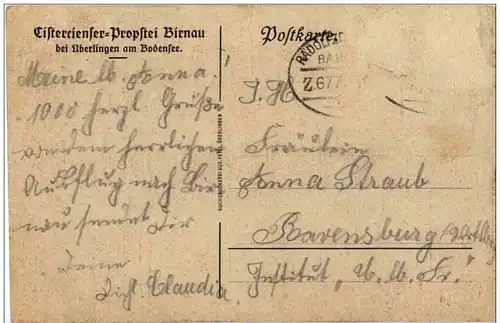 Cistercienser-Propstei Birnau
bei Überlingen am Bodensee.
Meine lb. Anna!
1000 herzl. Grüße
von dem herrlichen
Ausflug nach Bir
nau sendet Dir
Deine
Dichl. Claudia.
Postkarte.
RADOLFZ
BAH
Z.677
I. H.
Fräulein
Anna Straub
Ravensburg
Institut "U. lb. Fr."